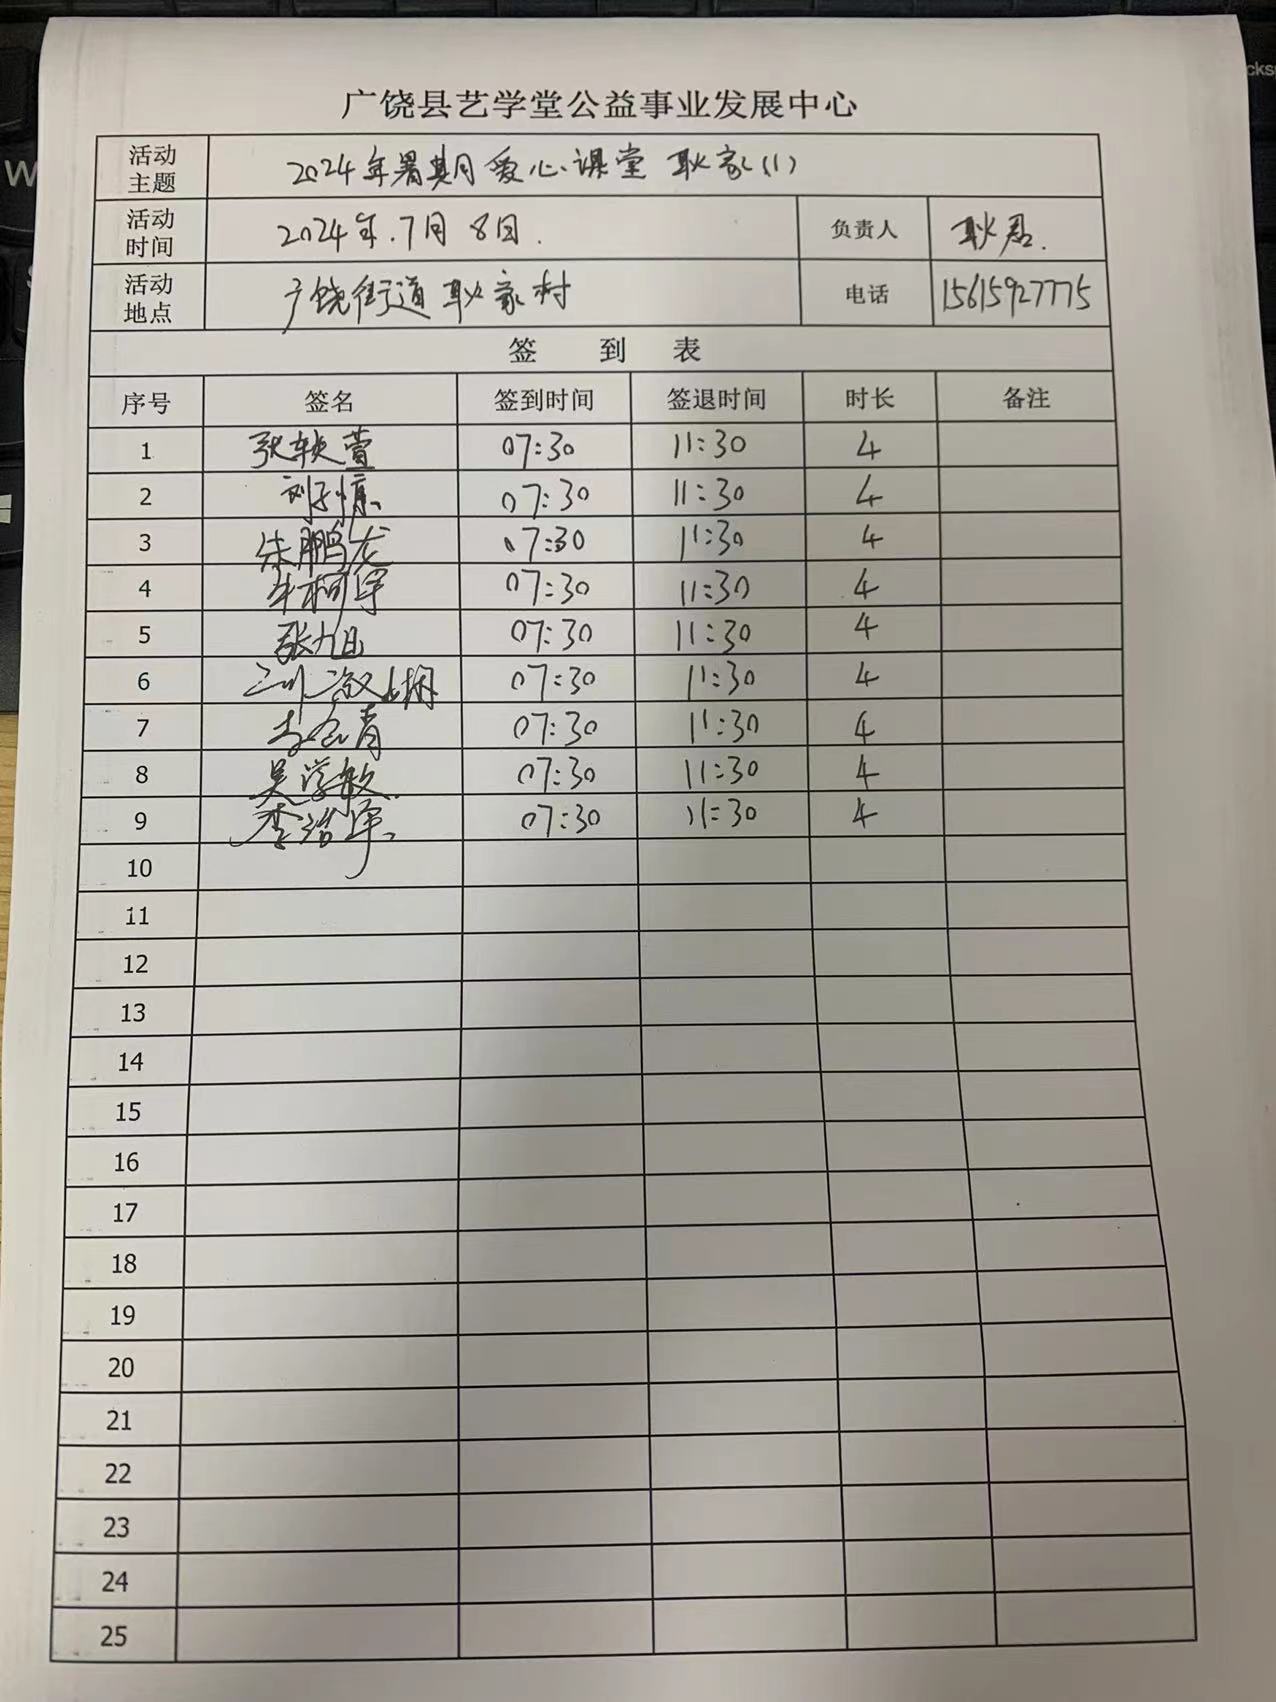 广饶县艺学堂公益事业发展中心
活动主题 2024年暑期爱心课堂 耿家(1)
活动时间 2024年.7月8日. 负责人 耿君.
活动地点 广饶街道耿家村 电话 15615927775
签 到 表
序号 签名 签到时间 签退时间 时长 备注
1 张轶萱 07:30 11:30 4
2 07:30 11:30 4
3 朱鹏龙 07:30 11:30 4
4 牛柯宇 07:30 11:30 4
5 张旭 07:30 11:30 4
6 07:30 11:30 4
7 07:30 11:30 4
8 吴学敏 07:30 11:30 4
9 07:30 11:30 4
10
11
12
13
14
15
16
17
18
19
20
21
22
23
24
25